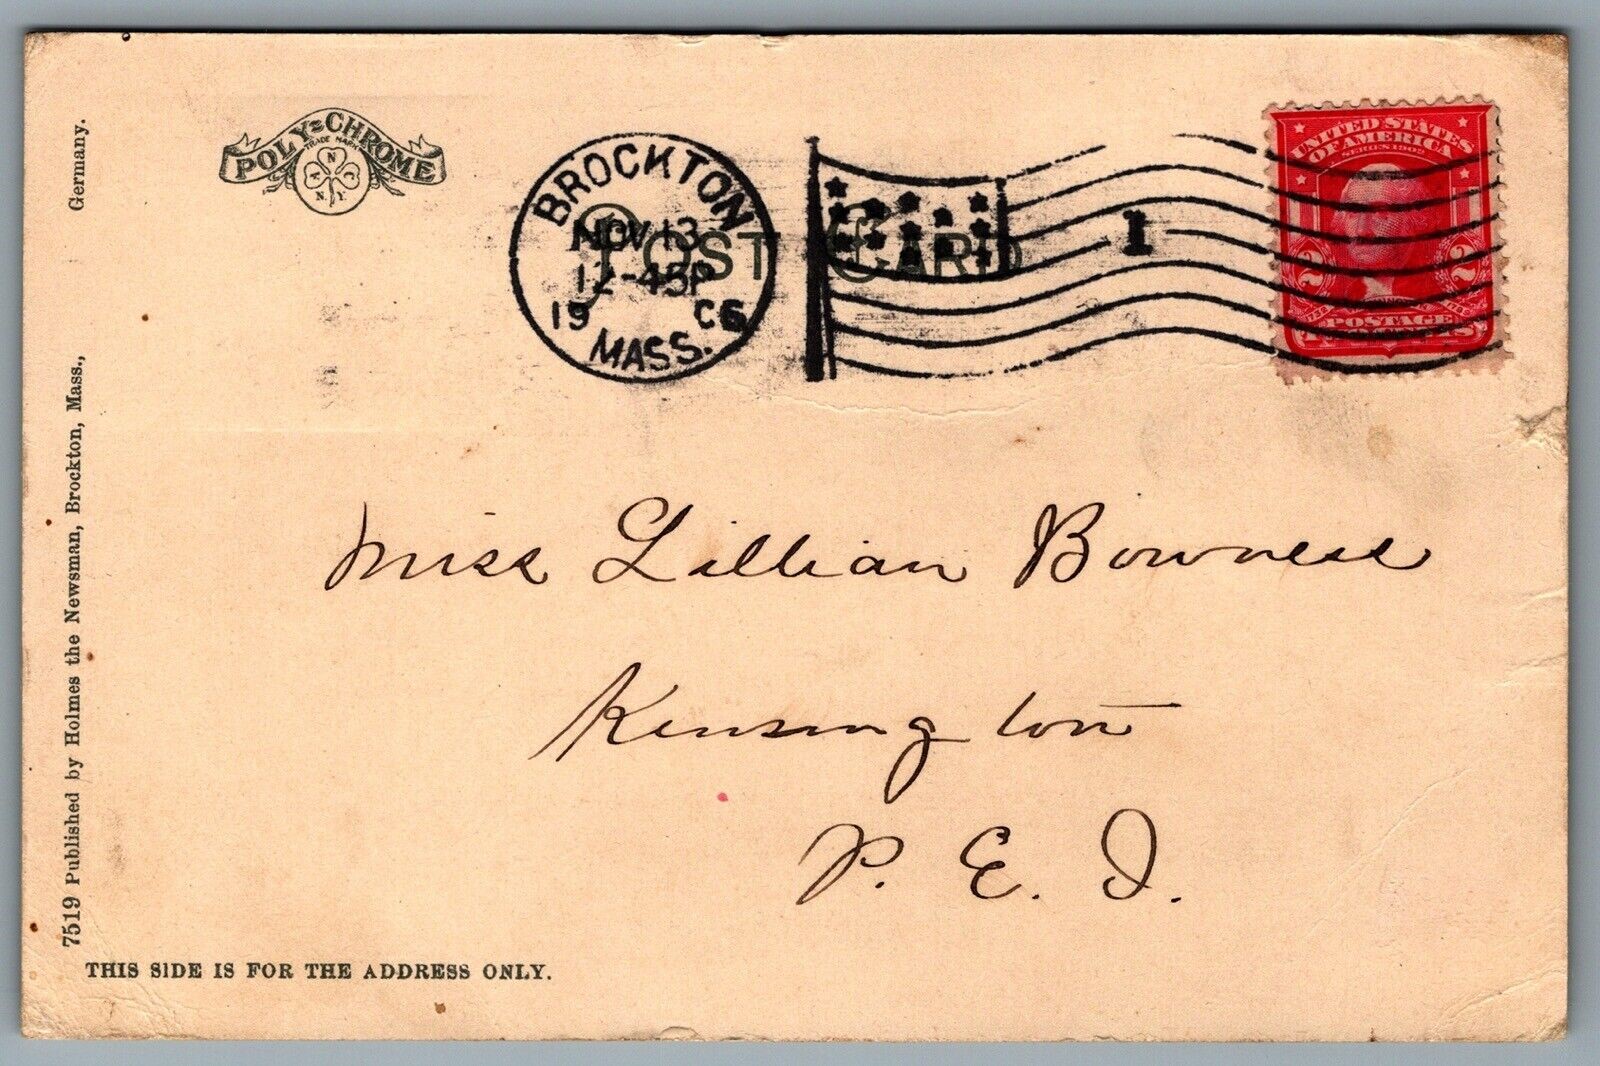 POLY-CHROME
TRADE MARK
A N C
N.Y.
POST CARD
BROCKTON
NOV 13
12-45P
1906
MASS.
1
UNITED STATES
OF AMERICA
SERIES 1902
2 2
POSTAGE
Miss Lillian Bowness
Kensington
P. E. I.
Germany.
7519 Published by Holmes the Newsman, Brockton, Mass.,
THIS SIDE IS FOR THE ADDRESS ONLY.